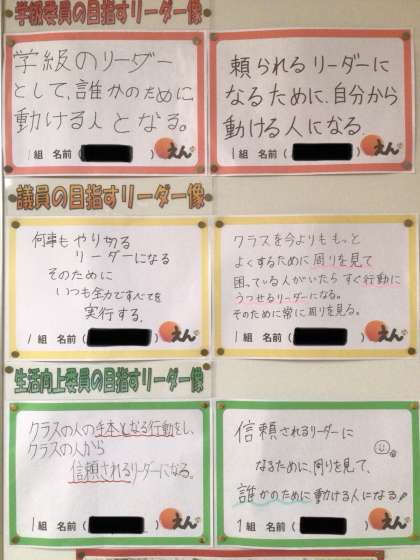 学級委員の目指すリーダー像
学級のリーダー
として、誰かのために
動ける人となる。
1組 名前( )
えん
頼られるリーダーに
なるために、自分から
動ける人になる。
1組 名前( )
えん
議員の目指すリーダー像
何事もやり切る
リーダーになる
そのために
いつも全力ですべてを
実行する。
1組 名前
えん
クラスを今よりももっと
よくするために周りを見て
困っている人がいたらすぐ行動に
うつせるリーダーになる。
そのために常に周りを見る。
1組 名前
えん
生活向上委員の目指すリーダー像
クラスの人の手本となる行動をし、
クラスの人から
信頼されるリーダーになる。
1組 名前( )
えん
信頼されるリーダーに
なるために、周りを見て、
誰かのために動ける人になる!
1組 名前( )
えん